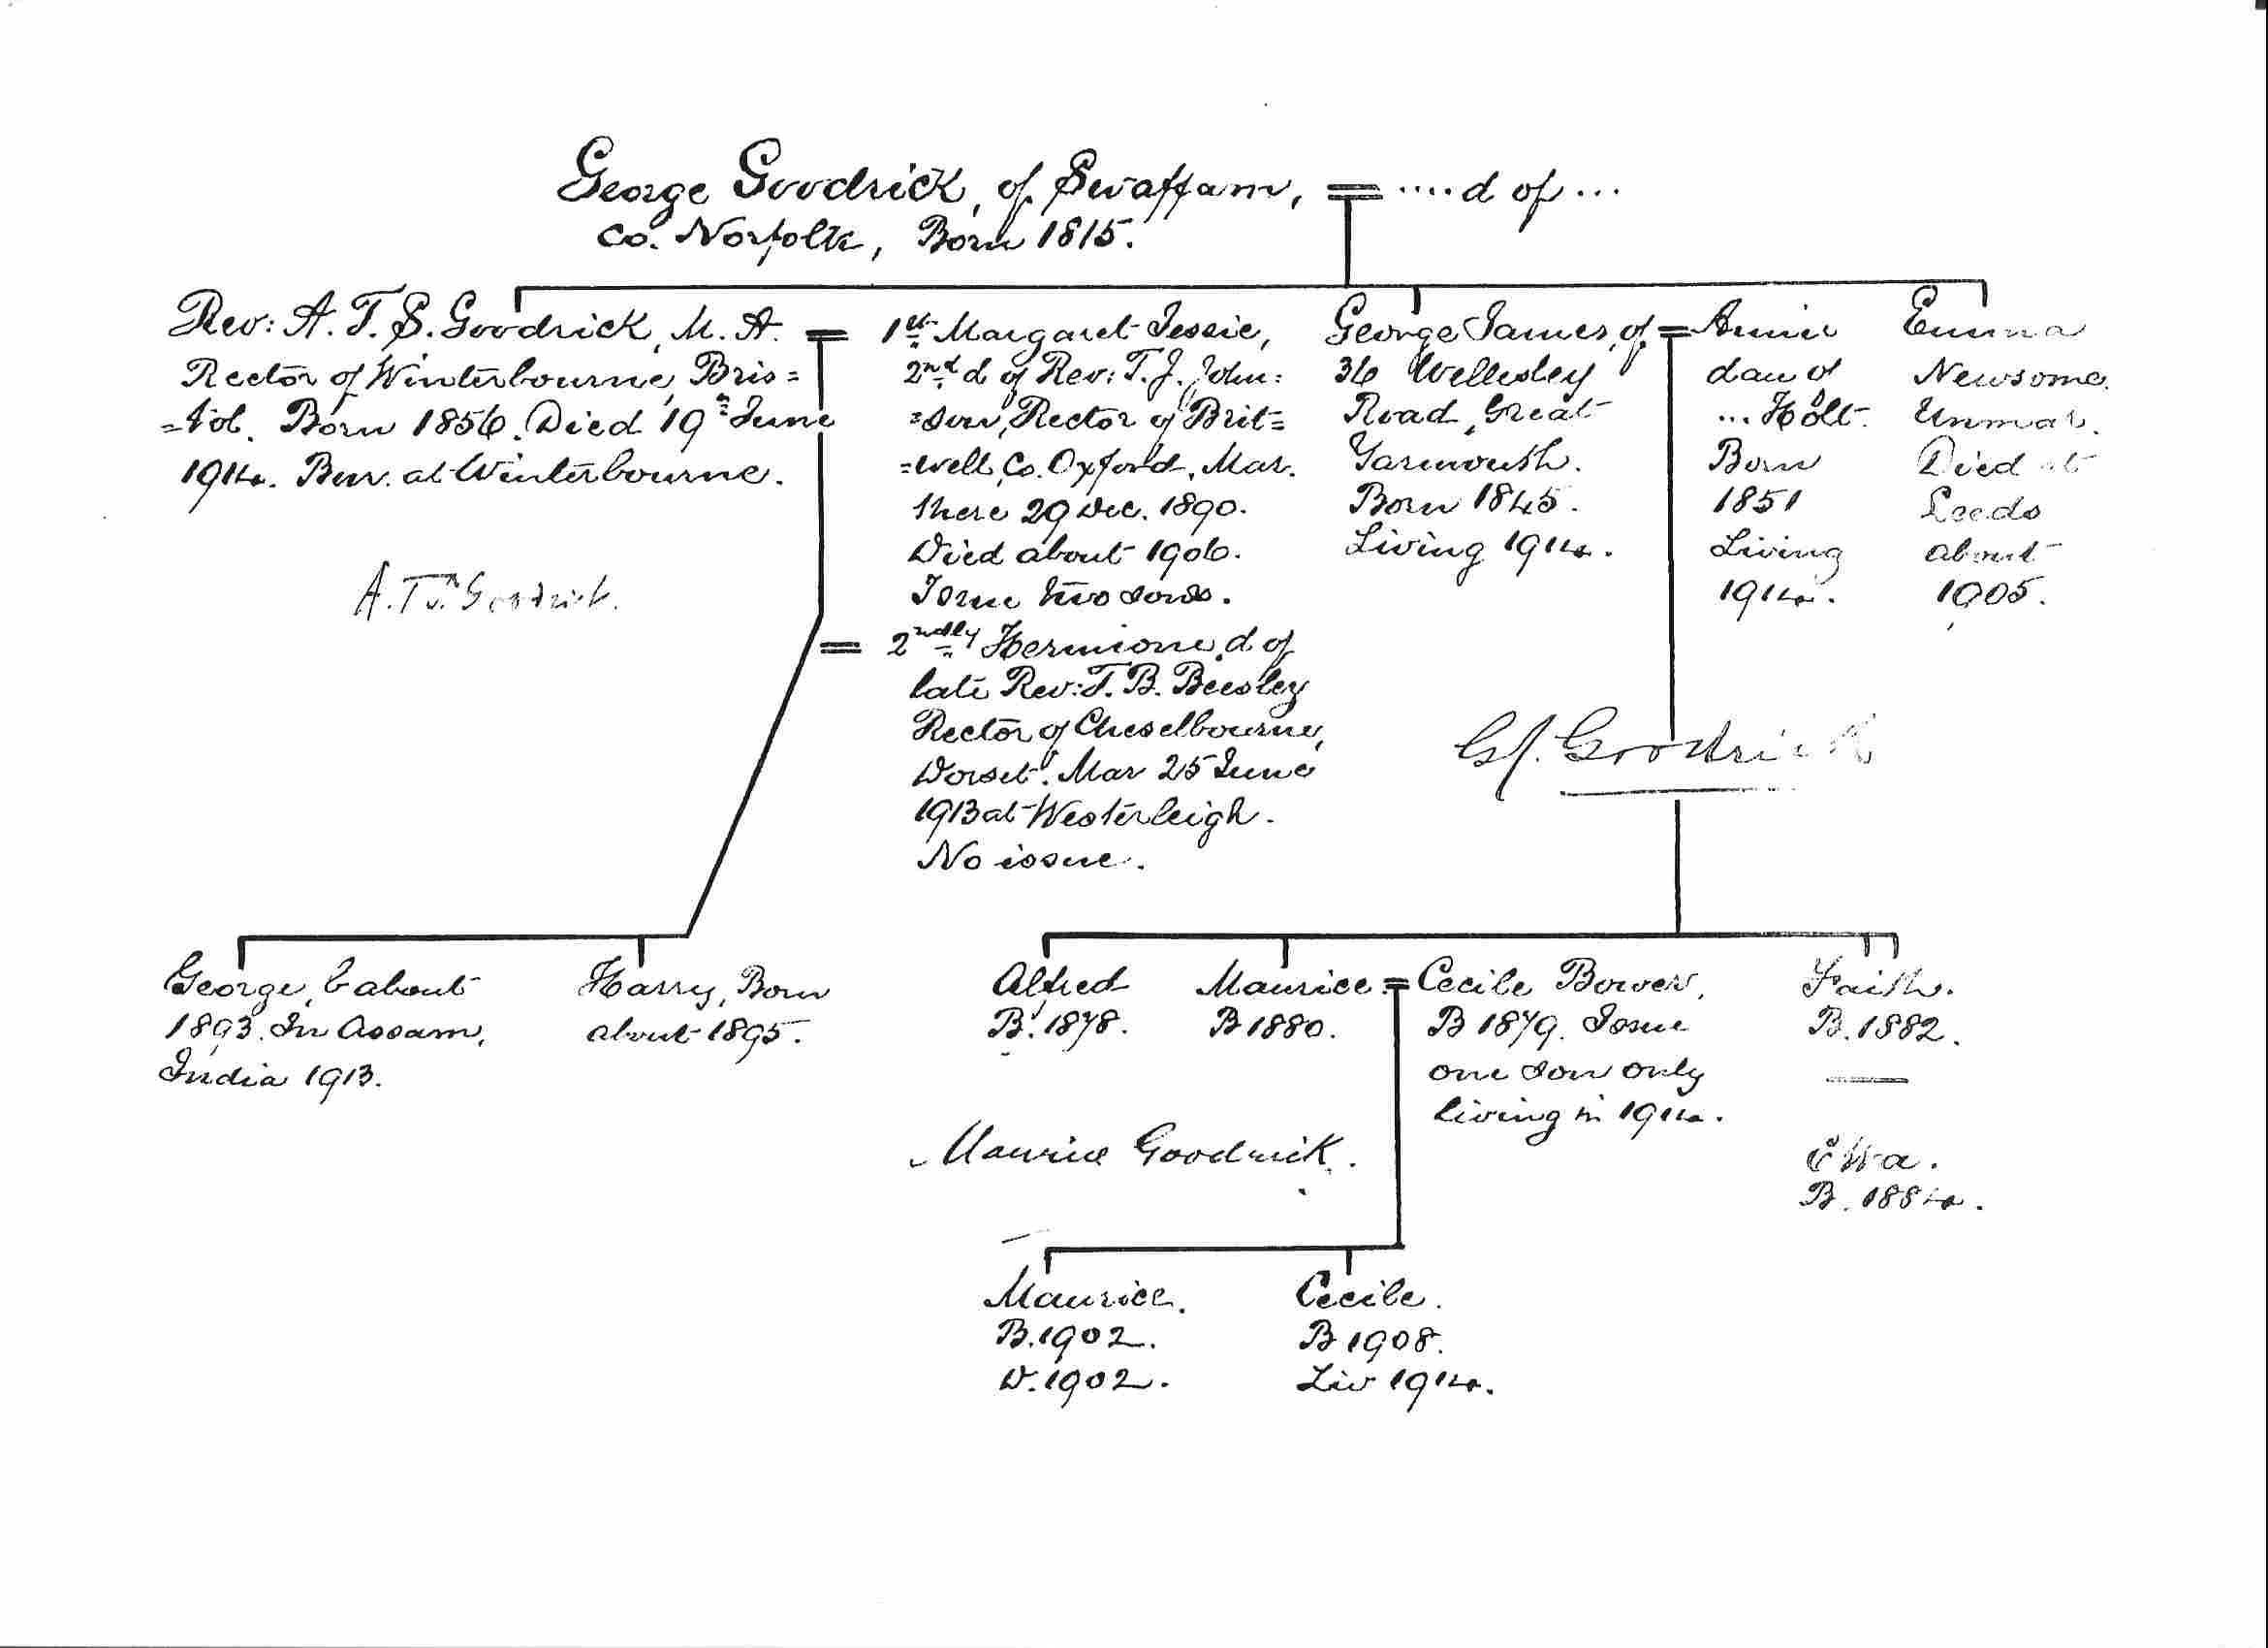 George Goodrick, of Swaffam, = .... d of ...
co. Norfolk, Born 1815.
Rev: A. T. S. Goodrick, M. A. =
Rector of Winterbourne, Bris=
=tol. Born 1856. Died 19th June
1914. Bur. at Winterbourne.
A. T. S. Goodrick.
1st Margaret Jessie,
2nd d of Rev: T. J. John=
=son, Rector of Brit=
=well, Co. Oxford, Mar.
there 29 Dec. 1890.
Died about 1906.
Issue two sons.
= 2ndly Hermione, d of
late Rev: T. B. Beesley
Rector of Cheselbourne,
Dorset. Mar 25 June
1913 at Westerleigh.
No issue.
George James, of =
36 Wellesley
Road, Great
Yarmouth.
Born 1845.
Living 1914.
Annie
dau of
... Holt.
Born
1851
Living
1914.
Emma
Newsome.
Unmar.
Died at
Leeds
about
1905.
GJ. Goodrick
George, b about
1893. In Assam,
India 1913.
Harry, Born
about 1895.
Alfred
B. 1878.
Maurice =
B 1880.
Cecile Bower,
B 1879. Issue
one son only
living in 1914.
Faith.
B. 1882.
B. 1884.
Maurice Goodrick.
Maurice.
B. 1902.
D. 1902.
Cecile.
B 1908.
Liv 1914.